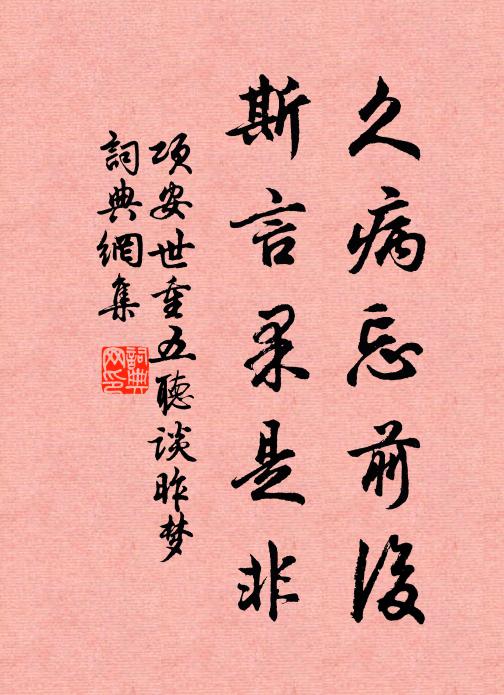 久病忘前後
斯言果是非
项安世重五聽谈昨梦
詞典網集
詞典網印